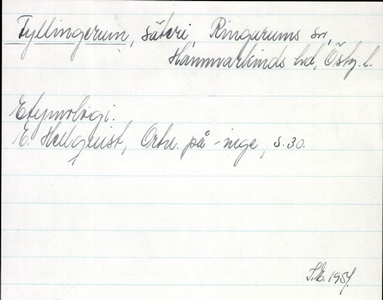 Tyllingerum, säteri, Ringarums sn,
Hammarkinds hd, Östg. l.
Etymologi:
E. Hellquist, Ortn. på -inge, s. 30.
1954